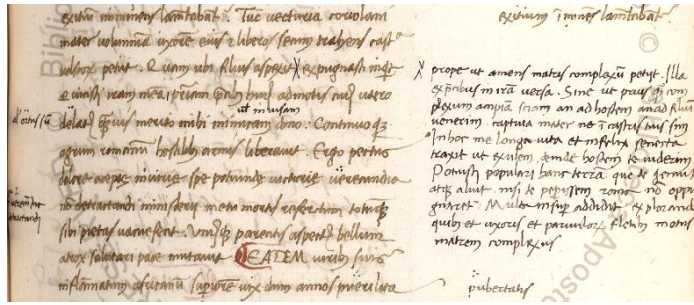 exitiū imminens lamētabāt. Tūc vecturia coriolani
mater volumniā uxorē eius & liberos secum trahens castra
volscorū petiit. Quam ubi filius aspexit expugnasti inquit
& vicisti iram meā, p̄riam p̄cib hui⁹ admotis cui⁹ utero
vt inuisam
quīuis merito mihi inimicam dono. Continuo q̄z
agrum romanum hostilib armis liberauit. Ergo pectus
dolore accepte iniurie spe potiunde victorie verecundia
detractandi ministerii metu mortis refertum totumq
sibi pietas vacuefecit. parentis aspect⁹ bellum
atrox salutari pace mutauit. EADEM viribus suis
inflammatum africanū supiorē vix dum annos puerilita
exitium īminēs lamētabāt
prope ut amens matris complexū petiit. Illa
ex p̄cibus in irā versa. Sine ut prius q̄ com
plexum accipiā sciam an ad hostem an ad filiū
venerim. captiua mater ne ī castris tuis sim
In hoc me longa vita et infelix senecta
traxit ut exulem deinde hostem te viderem
Potuisti populari hanc terrā que te genuit
atq aluit. nisi te pepissem roma nō oppu
gnaret. Multa insup addidit
quib et uxoris et paruulorū fletib motus
matrem complexus
pubertatis